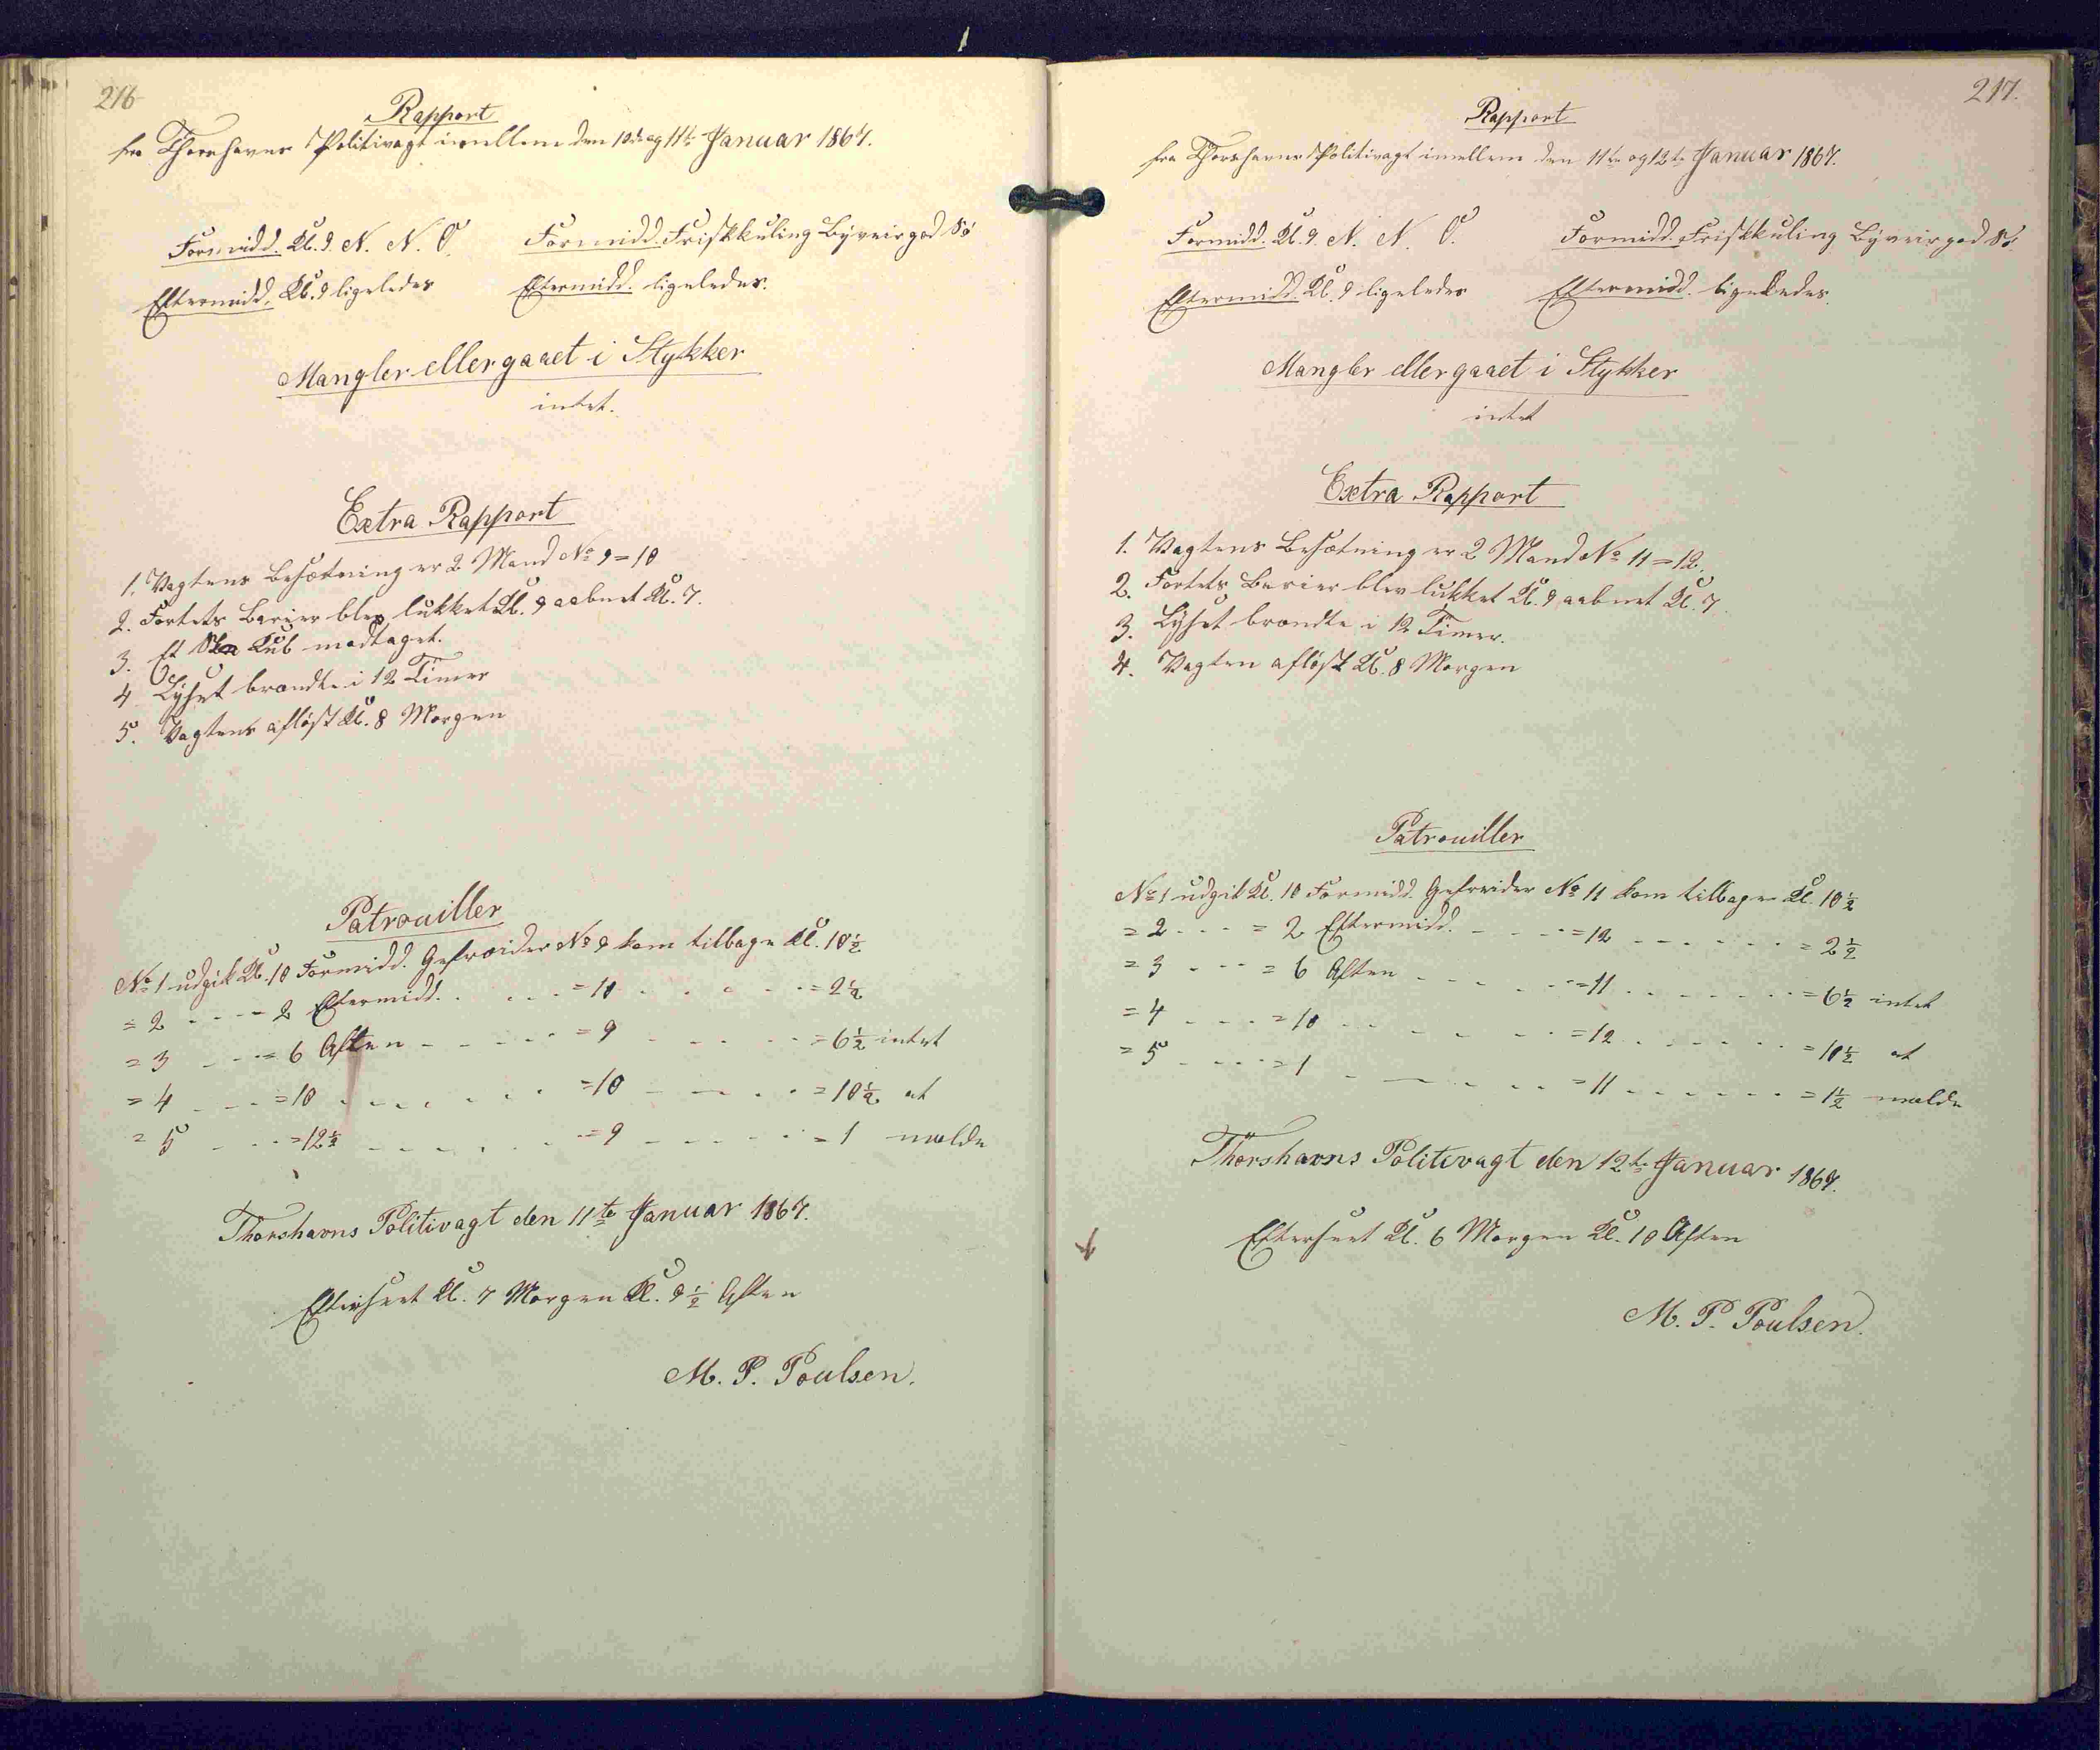 216
Rapport
fra Thorshavns Politivagt imellem den 10de og 11te Januar 1867.
Formidd. Kl. 9. N. N. O. Formidd. Friskkuling Byveir god Sø
Eftermidd. Kl. 9 ligeledes Eftermidd. ligeledes.
Mangler eller gaaet i Stykker
intet.
Extra Rapport
1. Vagtens Besætning er 2 Mand No 9 = 10
2. Fortets Barier blev lukket Kl. 9 aabnet Kl. 7.
3. Et Kub modtaget.
4 Lyset brændte i 12 Timer
5. Vagtens afløst Kl. 8 Morgen
Patrouiller
No 1 udgik Kl. 10 Formidd. Gefreider No 9 kom tilbage Kl. 10 1/2
= 2 - - - - 2 Eftermidd. - - - = 10 - - - - = 2 1/2
= 3 - - - = 6 Aften - - - - = 9 - - - - = 6 1/2 intet
= 4 - - - = 10 - - - - - = 10 - - - - = 10 1/2 at
= 5 - - - = 12 1/2 - - - - - = 9 - - - - = 1 melde
Thorshavns Politivagt den 11te Januar 1867.
Efterseet Kl. 7 Morgen Kl. 9 1/2 Aften
M. P. Poulsen.
217.
Rapport
fra Thorshavns Politivagt imellem den 11te og 12te Januar 1867.
Formidd. Kl. 9. N. N. O. Formidd. Friskkuling Byveir god Sø.
Eftermidd. Kl. 9 ligeledes Eftermidd. ligeledes.
Mangler eller gaaet i Stykker
intet
Extra Rapport
1. Vagtens Besætning er 2 Mand No 11 = 12.
2. Fortets Barier blev lukket Kl. 9 aabnet Kl. 7.
3. Lyset brændte i 12 Timer.
4. Vagten afløst Kl. 8 Morgen
Patrouiller
No 1 udgik Kl. 10 Formidd. Gefreider No 11 kom tilbage Kl. 10 1/2
= 2 - - - = 2 Eftermidd. - - - = 12 - - - - = 2 1/2
= 3 - - - = 6 Aften - - - - = 11 - - - - = 6 1/2 intet
= 4 - - - = 10 - - - - - = 12 - - - - = 10 1/2 at
= 5 - - - = 1 - - - - - = 11 - - - - = 1 1/2 melde
Thorshavns Politivagt den 12te Januar 1867.
Efterseet Kl. 6 Morgen Kl. 10 Aften
M. P. Poulsen.